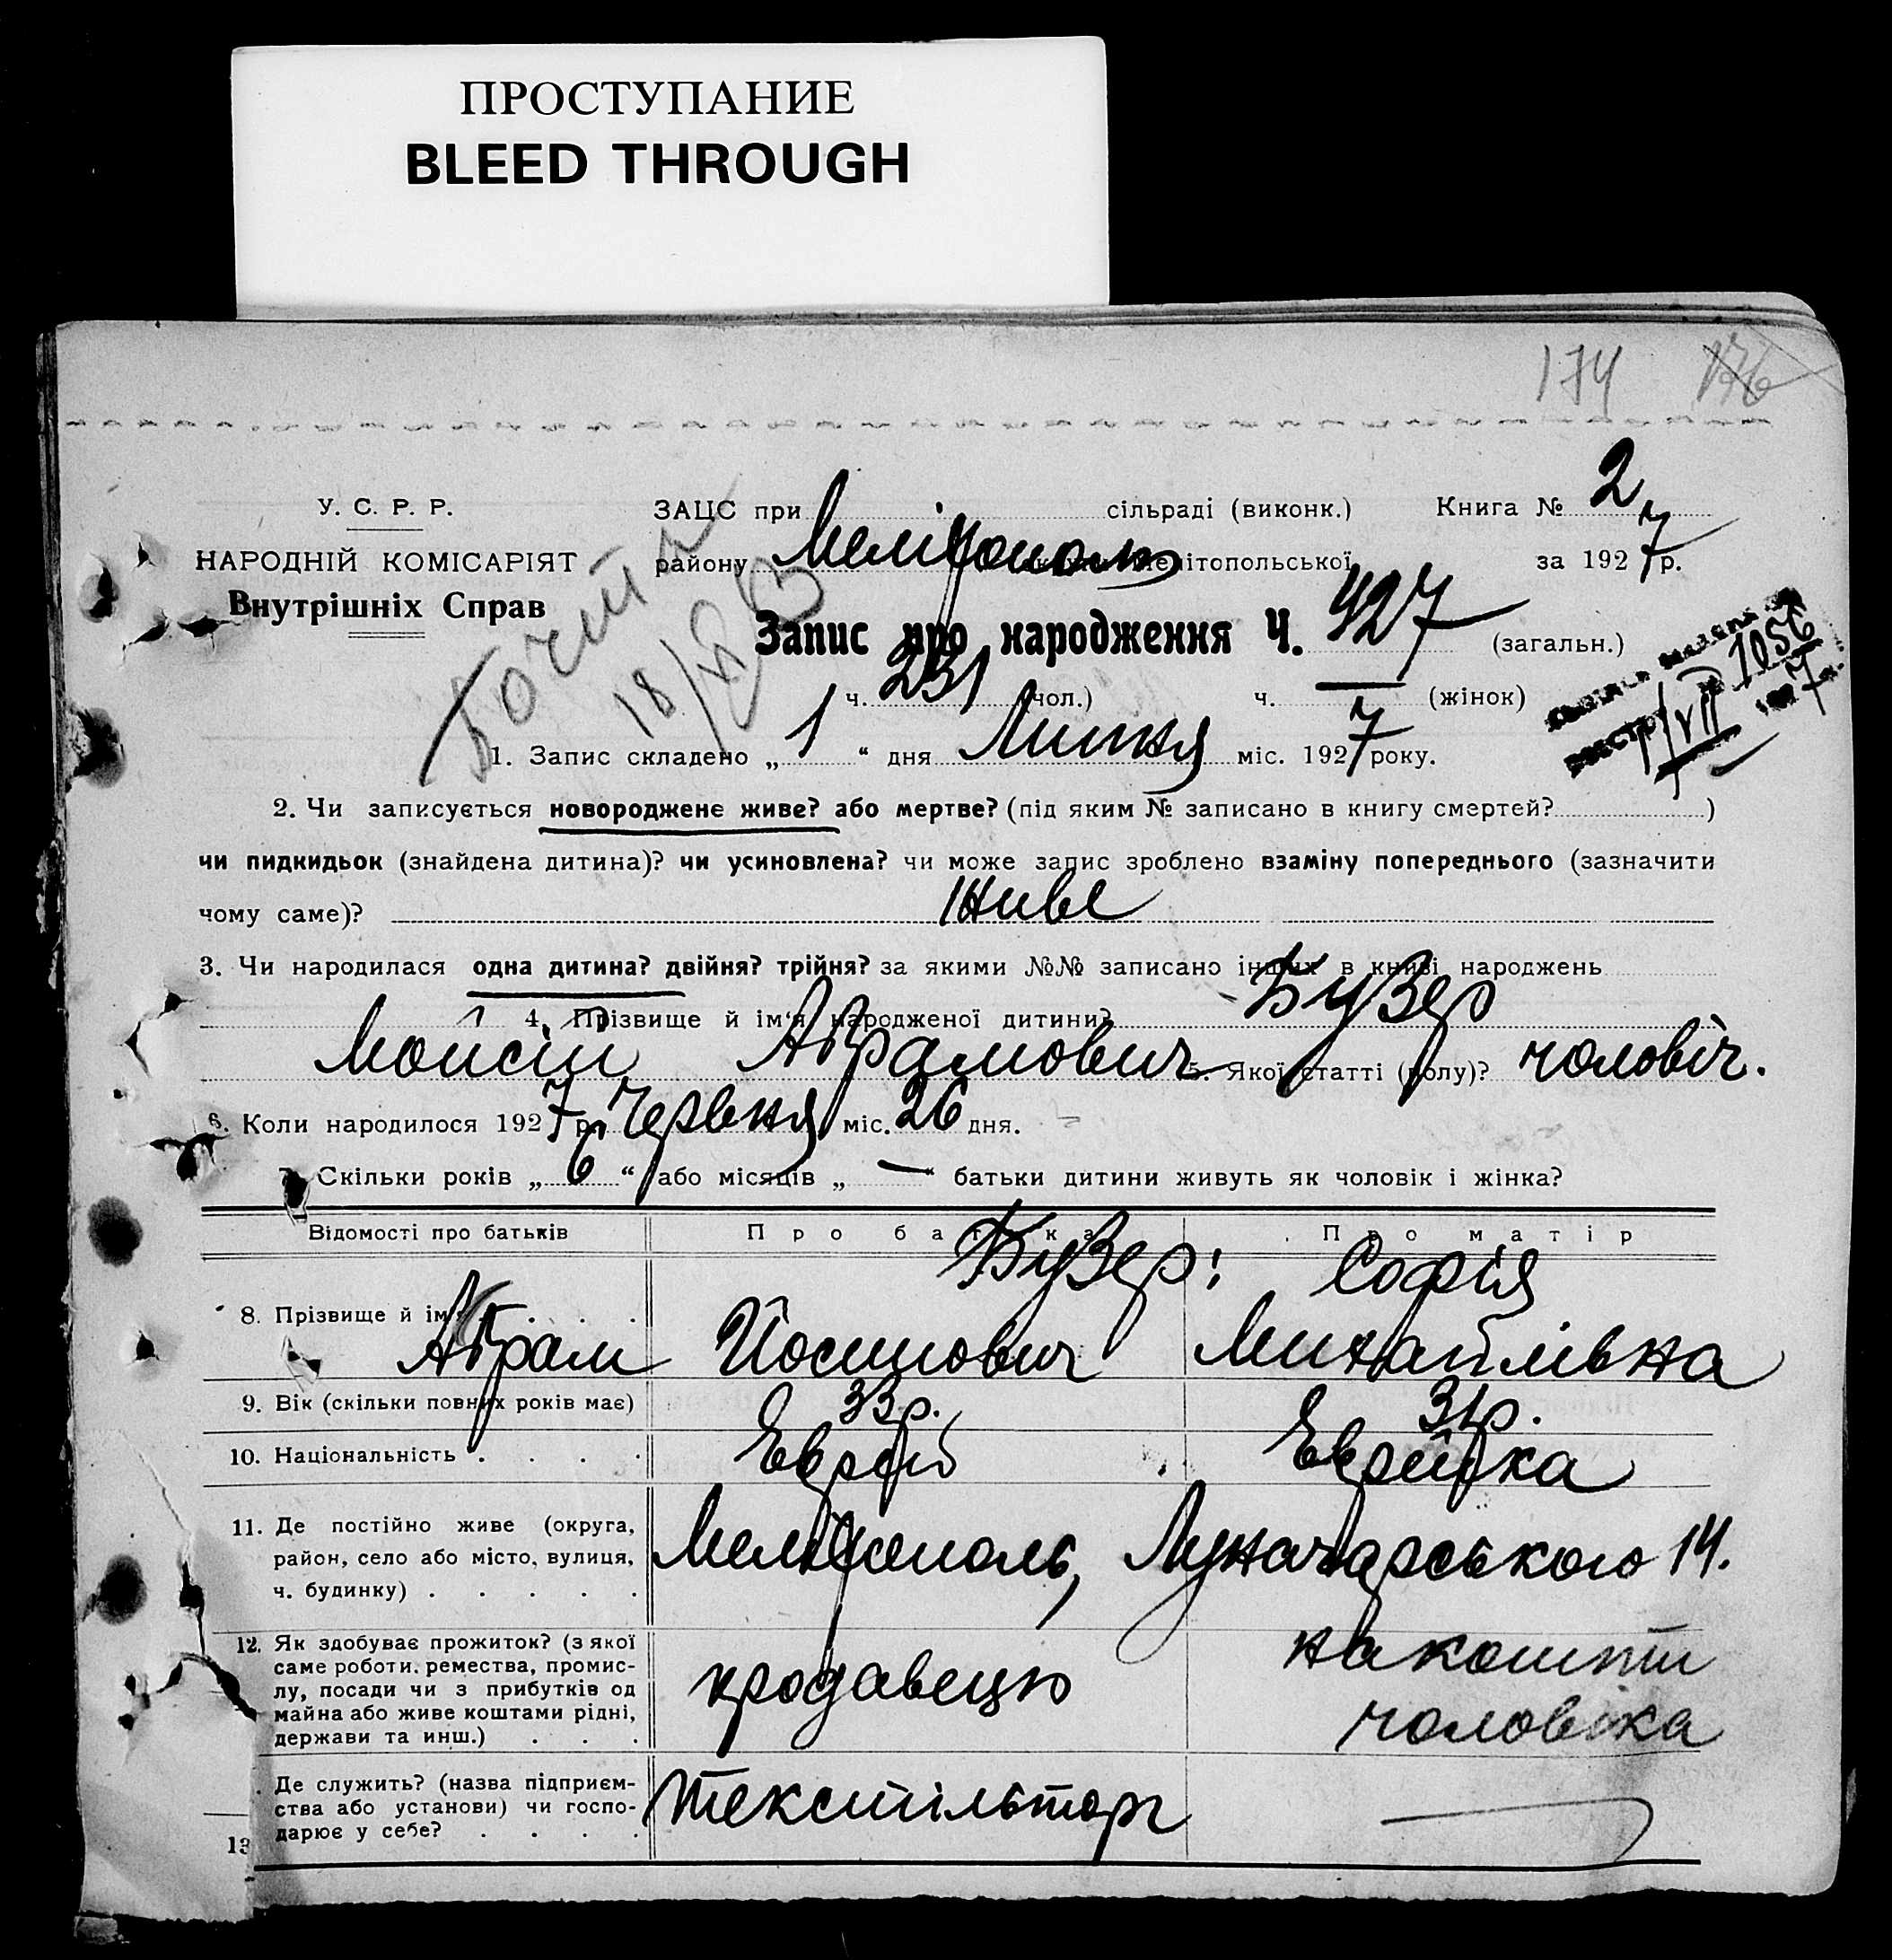 ПРОСТУПАНИЕ
BLEED THROUGH
174 176
У. С. Р. Р.
НАРОДНІЙ КОМІСАРІЯТ
Внутрішніх Справ
ЗАЦС при сільраді (виконк.) Книга № 2
району Мелітополь округи Мелітопольської за 1927 р.
Запис про народження Ч. 427 (загальн.)
ч. 231 (чол.) ч. — (жінок)
1056
1. Запис складено „ 1 “ дня Липня міс. 1927 року.
2. Чи записується новороджене живе? або мертве? (під яким № записано в книгу смертей? )
чи пидкидьок (знайдена дитина)? чи усиновлена? чи може запис зроблено взаміну попереднього (зазначити
чому саме)? Живе
3. Чи народилася одна дитина? двійня? трійня? за якими №№ записано інших в книзі народжень
4. Прізвище й ім'я народженої дитини? Бузер
Мойсій Абрамович 5. Якої статті (полу)? чоловіч.
6. Коли народилося 1927 р. Червня міс. 26 дня.
7. Скільки років „ 6 “ або місяців „ — “ батьки дитини живуть як чоловік і жінка?
Відомості про батьків Про батька Про матір
Бузер: Софія
8. Прізвище й ім'я Абрам Йосипович Михайлівна
9. Вік (скільки повних років має) 33 р. 31 р.
10. Національність . . . . Еврей Еврейка
11. Де постійно живе (округа,
район, село або місто, вулиця, Мелітополь, Луначарського 14.
ч. будинку) . . . . .
12. Як здобуває прожиток? (з якої
саме роботи, ремества, промис-
лу, посади чи з прибутків од
майна або живе коштами рідні,
держави та инш.) . . .
продавецю на кошти
чоловіка
13 Де служить? (назва підприєм-
ства або установи) чи госпо-
дарює у себе? . . . .
Текстільторг —